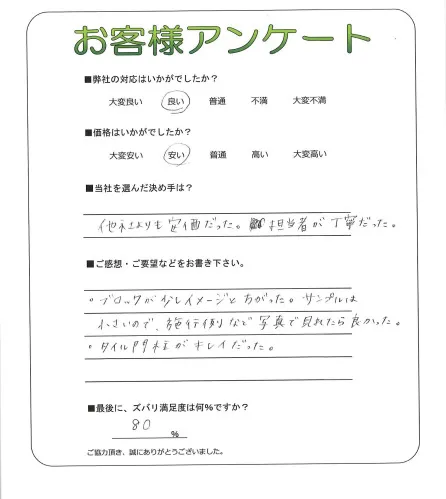 お客様アンケート
■弊社の対応はいかがでしたか？
大変良い　良い　普通　不満　大変不満
■価格はいかがでしたか？
大変安い　安い　普通　高い　大変高い
■当社を選んだ決め手は？
他社よりも安価だった。担当者が丁寧だった。
■ご感想・ご要望などをお書き下さい。
・ブロックが少しイメージとちがった。サンプルは
小さいので、施行例など写真で見れたら良かった。
・タイル門柱がキレイだった。
■最後に、ズバリ満足度は何%ですか？
80 %
ご協力頂き、誠にありがとうございました。